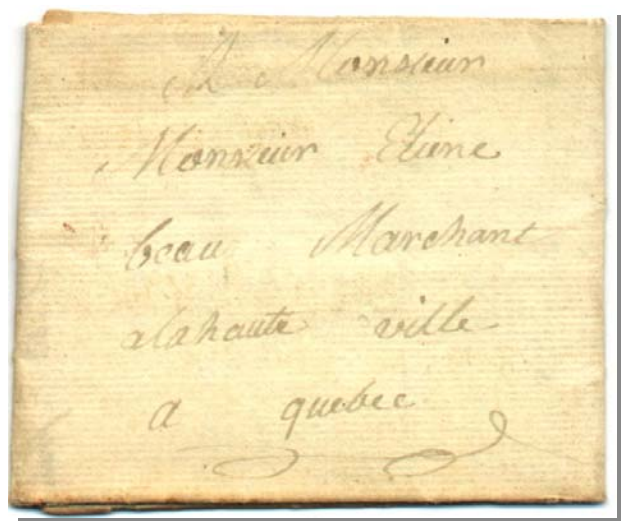 A Monsieur
Monsieur Etiene
beau Marchant
alahaute ville
a quebec